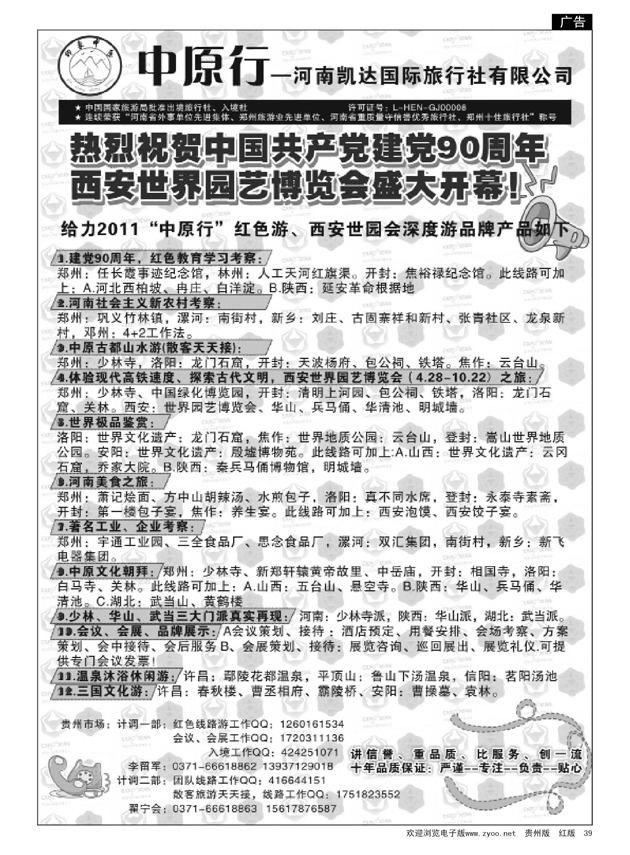 广告
中原行—河南凯达国际旅行社有限公司
★ 中国国家旅游局批准出境旅行社、入境社 许可证号：L-HEN-GJ00008
★ 连续荣获“河南省外事单位先进集体、郑州旅游业先进单位、河南省重质量守信誉优秀旅行社、郑州十佳旅行社”称号
热烈祝贺中国共产党建党90周年
西安世界园艺博览会盛大开幕！
给力2011“中原行”红色游、西安世园会深度游品牌产品如下
1.建党90周年，红色教育学习考察：
郑州：任长霞事迹纪念馆，林州：人工天河红旗渠。开封：焦裕禄纪念馆。此线路可加
上：A.河北西柏坡、冉庄、白洋淀。B.陕西：延安革命根据地
2.河南社会主义新农村考察：
郑州：巩义竹林镇，漯河：南街村，新乡：刘庄、古固寨祥和新村、张青社区、龙泉新
村，邓州：4+2工作法。
3.中原古都山水游(散客天天接)：
郑州：少林寺，洛阳：龙门石窟，开封：天波杨府、包公祠、铁塔。焦作：云台山。
4.体验现代高铁速度、探索古代文明，西安世界园艺博览会（4.28-10.22）之旅：
郑州：少林寺、中国绿化博览园，开封：清明上河园、包公祠、铁塔，洛阳：龙门石
窟、关林。西安：世界园艺博览会、华山、兵马俑、华清池、明城墙。
5.世界极品鉴赏：
洛阳：世界文化遗产：龙门石窟，焦作：世界地质公园：云台山，登封：嵩山世界地质
公园。安阳：世界文化遗产：殷墟博物苑。此线路可加上:A.山西：世界文化遗产：云冈
石窟，乔家大院。B.陕西：秦兵马俑博物馆，明城墙。
河南美食之旅：
郑州：萧记烩面、方中山胡辣汤、水煎包子，洛阳：真不同水席，登封：永泰寺素斋，
开封：第一楼包子宴，焦作：养生宴。此线路可加上：西安泡馍、西安饺子宴。
7.著名工业、企业考察：
郑州：宇通工业园、三全食品厂、思念食品厂，漯河：双汇集团，南街村，新乡：新飞
电器集团。
中原文化朝拜：郑州：少林寺、新郑轩辕黄帝故里、中岳庙，开封：相国寺，洛阳：
白马寺、关林。此线路可加上：A.山西：五台山、悬空寺。B.陕西：华山、兵马俑、华
清池。C.湖北：武当山、黄鹤楼
9.少林、华山、武当三大门派真实再现：河南：少林寺派，陕西：华山派，湖北：武当派。
10.会议、会展、品牌展示：A会议策划、接待：酒店预定、用餐安排、会场考察、方案
策划、会中接待、会后服务 B、会展策划、接待：展览咨询、巡回展出、展览礼仪.可提
供专门会议发票！
11.温泉沐浴休闲游：许昌：鄢陵花都温泉，平顶山：鲁山下汤温泉，信阳：茗阳汤池
12.三国文化游：许昌：春秋楼、曹丞相府、霸陵桥、安阳：曹操墓、袁林。
贵州市场：计调一部：红色线路游工作QQ：1260161534
会议、会展工作QQ：1720311136
入境工作QQ：424251071
李留军：0371-66618862 13937129018
计调二部：团队线路工作QQ：416644151
散客旅游天天接，线路工作QQ：1751823552
翟宁会：0371-66618863 15617876587
讲信誉、重品质、比服务、创一流
十年品质保证：严谨--专注--负责--贴心
欢迎浏览电子版www.zyoo.net 贵州版 红版 39